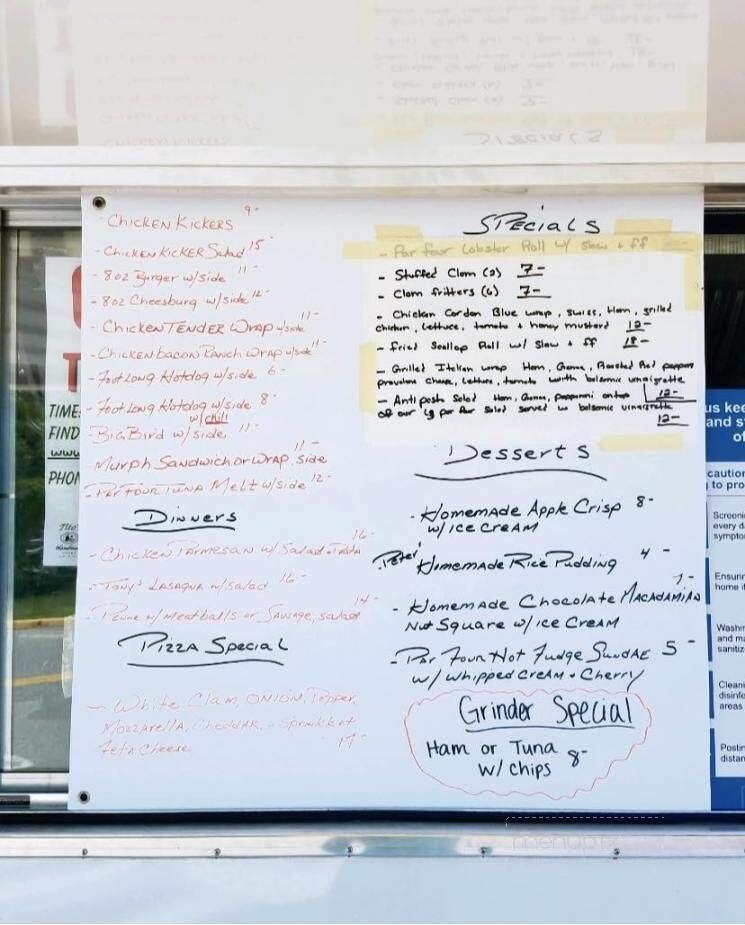 - Chicken Kickers 9-
- Chicken Kicker Salad 15-
- 8oz Burger w/side 11-
- 8oz Cheesburg w/side 12-
- Chicken Tender Wrap w/side 11-
- Chicken bacon Ranch Wrap w/side 11-
- Foot Long Hotdog w/side 6-
- Foot Long Hotdog w/side 8-
w/chili
- Big Bird w/side 11-
- Murph Sandwich or Wrap, side 11-
- Par Four Tuna Melt w/side 12-
Dinners
- Chicken Parmesan w/ Salad + Pasta 16-
- Tony's Lasagna w/Salad 16-
w/Meatballs or Sausage, salad 14-
Pizza Special
- White Clam, Onion, Pepper,
Mozzarella, Cheddar, + Sprinkle of
Feta Cheese 17-
Specials
- Par four Lobster Roll w/ slaw + ff
- Stuffed Clam (2) 7-
- Clam fritters (6) 7-
- Chicken Cordon Blue wrap, swiss, Ham, grilled
chicken, lettuce, tomato + honey mustard 12-
- fried Scallop Roll w/ Slaw + ff 18-
- Grilled Italian wrap Ham, Genoa, Roasted Red peppers
provolone cheese, lettuce, tomato with balsamic vinaigrette
12-
- Antipasto Salad Ham, Genoa, pepperoni on top
of our lg par four Salad served w balsamic vinaigrette
12-
Desserts
- Homemade Apple Crisp 8-
w/ice cream
Homemade Rice Pudding 4-
- Homemade Chocolate Macadamian 7-
Nut Square w/ice cream
- Par Four Hot Fudge Sundae 5-
w/ whipped cream + cherry
Grinder Special
Ham or Tuna 8-
w/ chips
TIME
FIND
www
PHON
Tito's
us kee
and s
of
caution
to pro
Screeni
every d
sympto
Ensurin
home i
Washin
and m
sanitiz
Cleani
disinfe
areas
Postin
distan